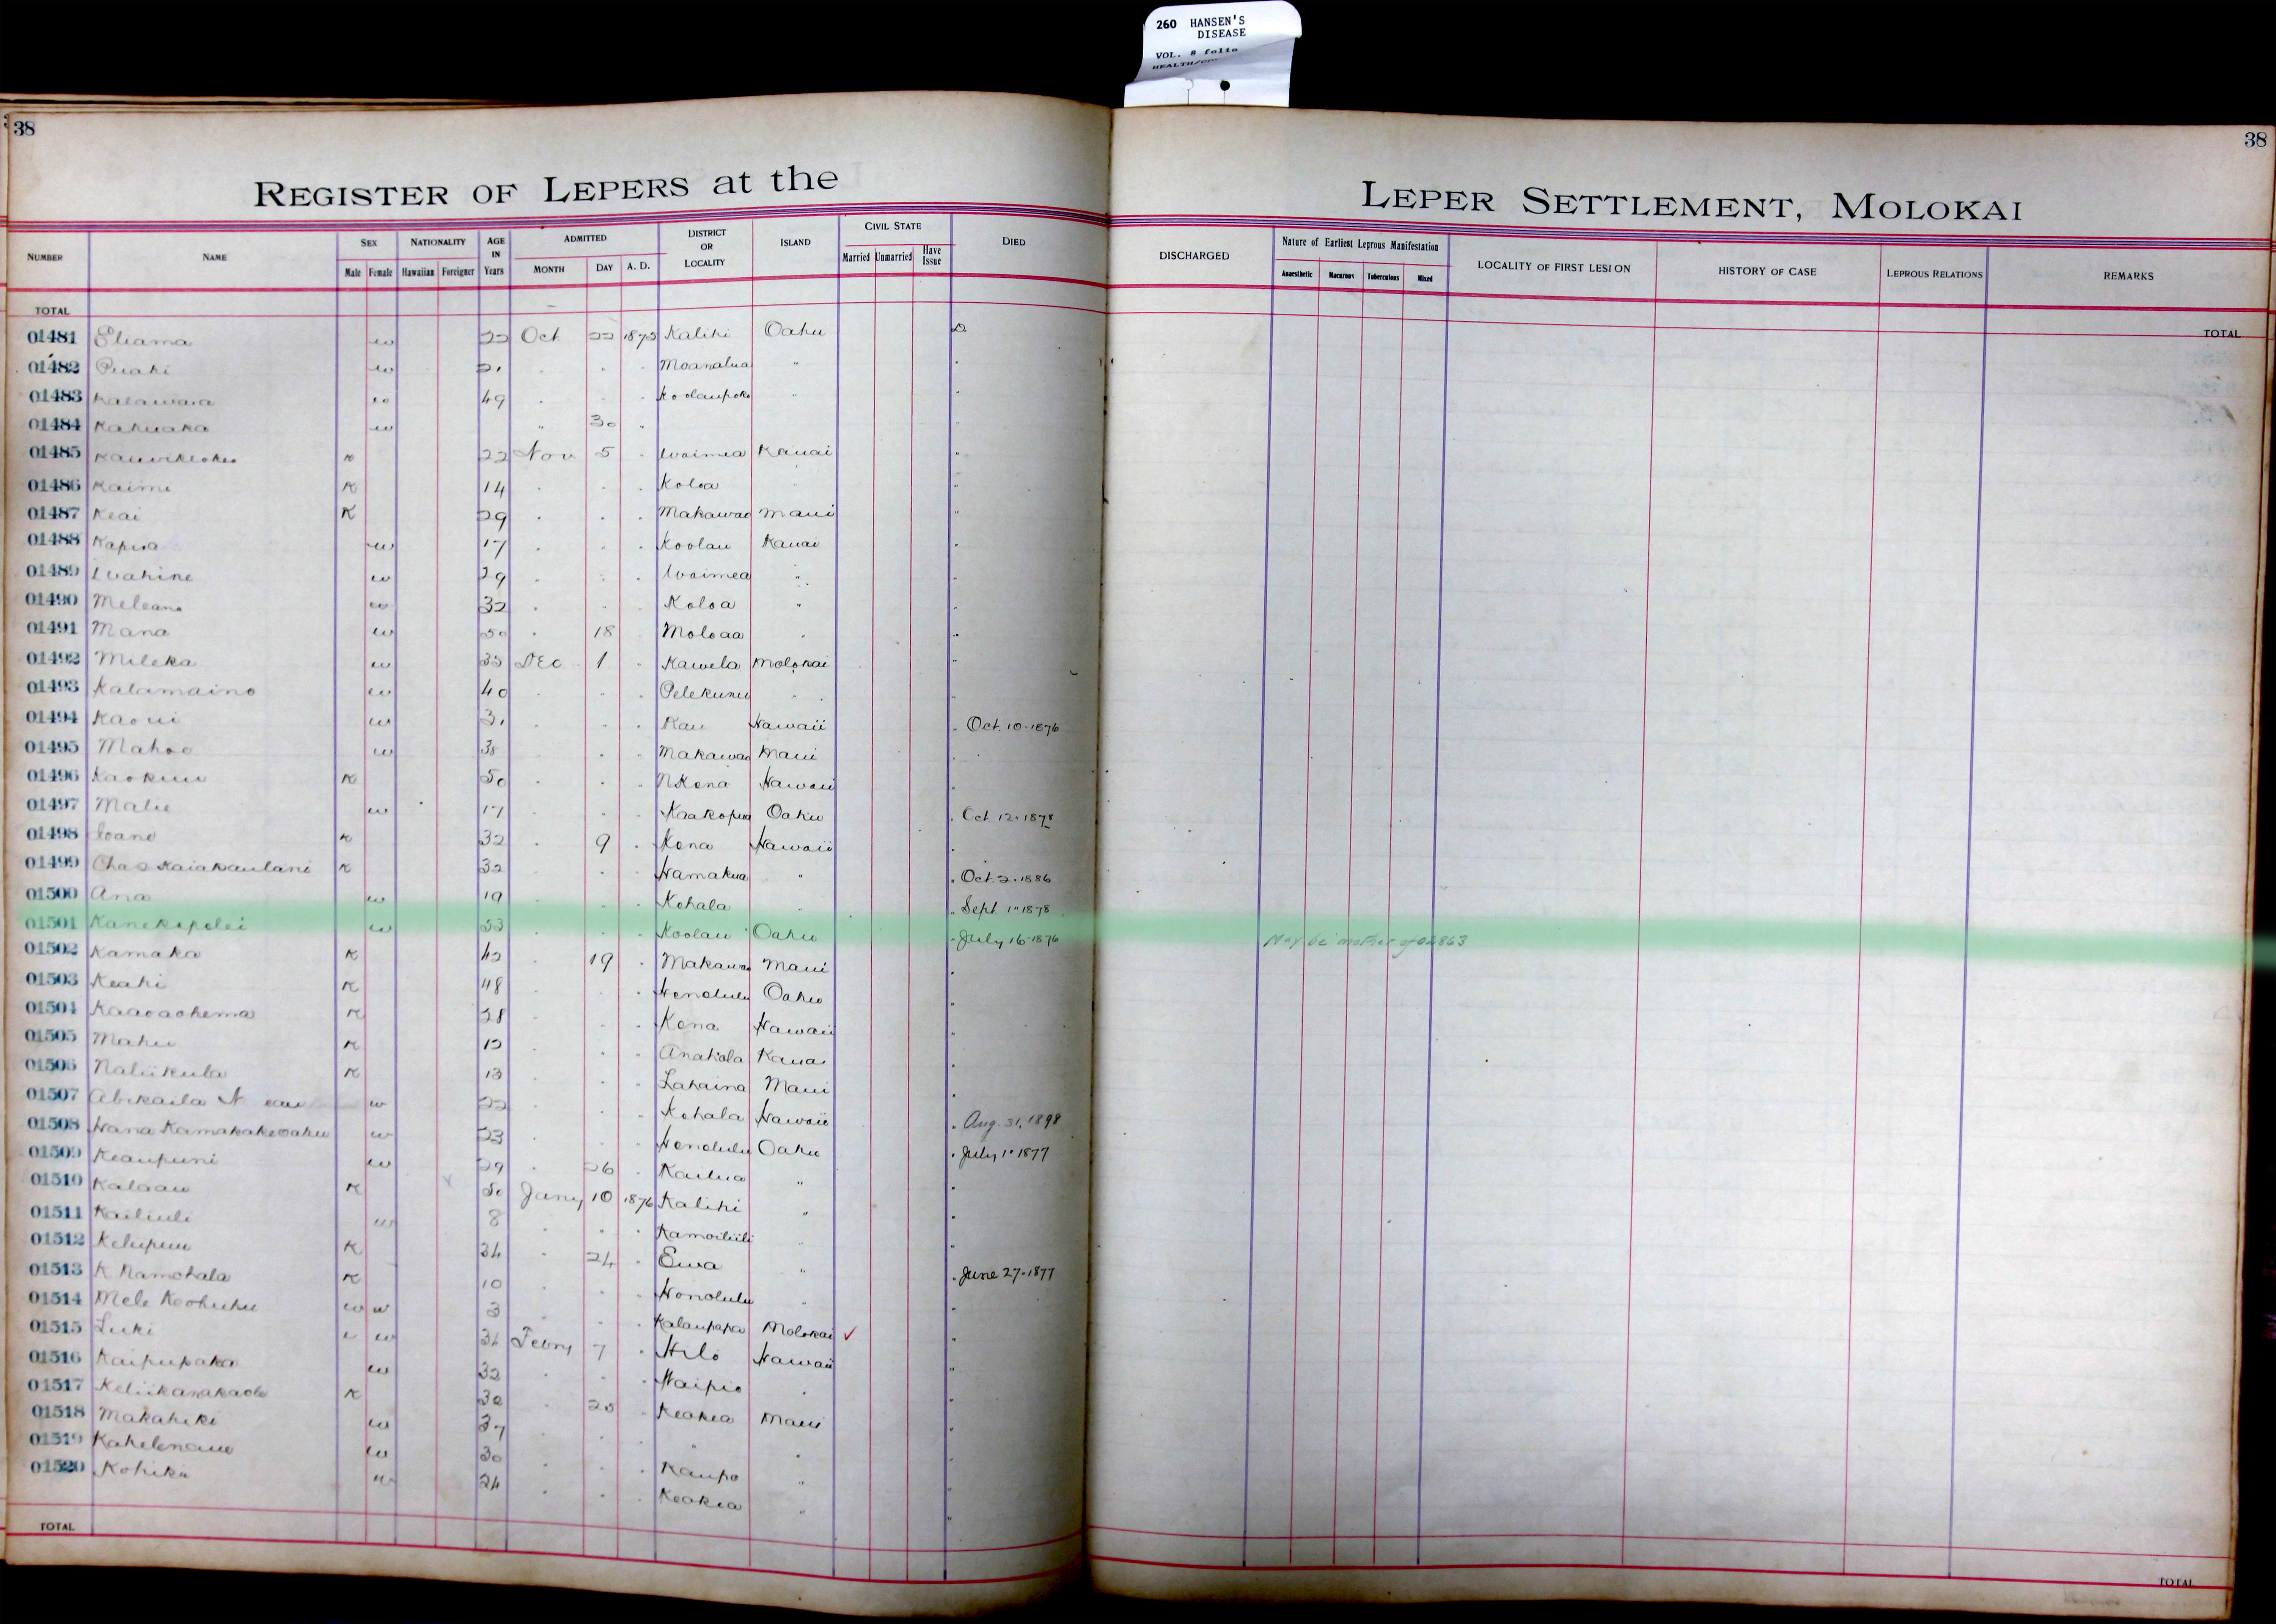 260 HANSEN'S
DISEASE
VOL. 8 folio
38
38
REGISTER OF LEPERS at the LEPER SETTLEMENT, MOLOKAI
NUMBER NAME SEX NATIONALITY AGE IN Years ADMITTED DISTRICT OR LOCALITY ISLAND CIVIL STATE DIED DISCHARGED Nature of Earliest Leprous Manifestation LOCALITY OF FIRST LESION HISTORY OF CASE LEPROUS RELATIONS REMARKS
Male Female Hawaiian Foreigner MONTH DAY A. D. Married Unmarried Have Issue Anaesthetic Macurous Tuberculous Mixed
TOTAL TOTAL
01481 Eliama w 22 Oct 22 1875 Kalihi Oahu D
01482 Puahi w 21 " " " Moanalua "
01483 Kalawaia w 49 " " " Koolaupoko "
01484 Kahuaka w " 30 "
01485 k 22 Nov 5 " Waimea Kauai "
01486 Kaimi k 14 " " " Koloa "
01487 Keai K 29 " " " Makawao Maui "
01488 Kapua w 17 " " " Koolau Kauai "
01489 Wahine w 29 " " " Waimea " "
01490 Meleana w 32 " " " Koloa " "
01491 Mana w 50 " 18 " Moloaa " "
01492 Mileka w 35 Dec 1 " Kawela Molokai "
01493 Kalamaino w 40 " " " Pelekunu " "
01494 Kaoui w 31 " " " Kau Hawaii " Oct. 10-1876
01495 Mahoe w 38 " " " Makawao Maui "
01496 Kaokuu k 50 " " " N Kona Hawaii "
01497 Malie w 17 " " " Kaakopua Oahu " Oct 12-1878
01498 Ioane k 32 " 9 " Kona Hawaii "
01499 Chas Kaiakaulani k 32 " " " Hamakua " " Oct. 2-1886
01500 Ana w 19 " " " Kohala " " Sept 1-1878
01501 Kanekapolei w 53 " " " Koolau Oahu " July 16-1876 May be mother of 02863
01502 Kamaka k 42 " 19 " Makawao Maui "
01503 Keahi k 48 " " " Honolulu Oahu "
01504 Kaaoaohema k 28 " " " Kona Hawaii "
01505 Mahu k 12 " " " Anahola Kauai "
01506 Naliikula k 13 " " " Lahaina Maui "
01507 Abikaila N w 22 " " " Kohala Hawaii " Aug. 31, 1898
01508 Hana Kamakakeoahu w 23 " " " Honolulu Oahu " July 1-1877
01509 Keaupuni w 29 " 26 " Kailua " "
01510 Kalaau k 50 Jany 10 1876 Kalihi " "
01511 Kailiuli w 8 " " " Kamoiliili " "
01512 Kelupuu k 34 " 24 " Ewa " " June 27-1877
01513 K Namohala k 10 " " " Honolulu " "
01514 Mele Keohuhu w w 3 " " " Kalaupapa Molokai ✓ "
01515 Luki w 34 Febry 7 " Hilo Hawaii "
01516 Kaipupaka w 32 " " " Waipio " "
01517 Keliikanakaole k 30 " 25 " Keokea Maui "
01518 Makahiki w 37 " " " " " "
01519 Kahelenaue w 30 " " " Kaupo " "
01520 Kohika w 24 " " " Keokea " "
TOTAL TOTAL